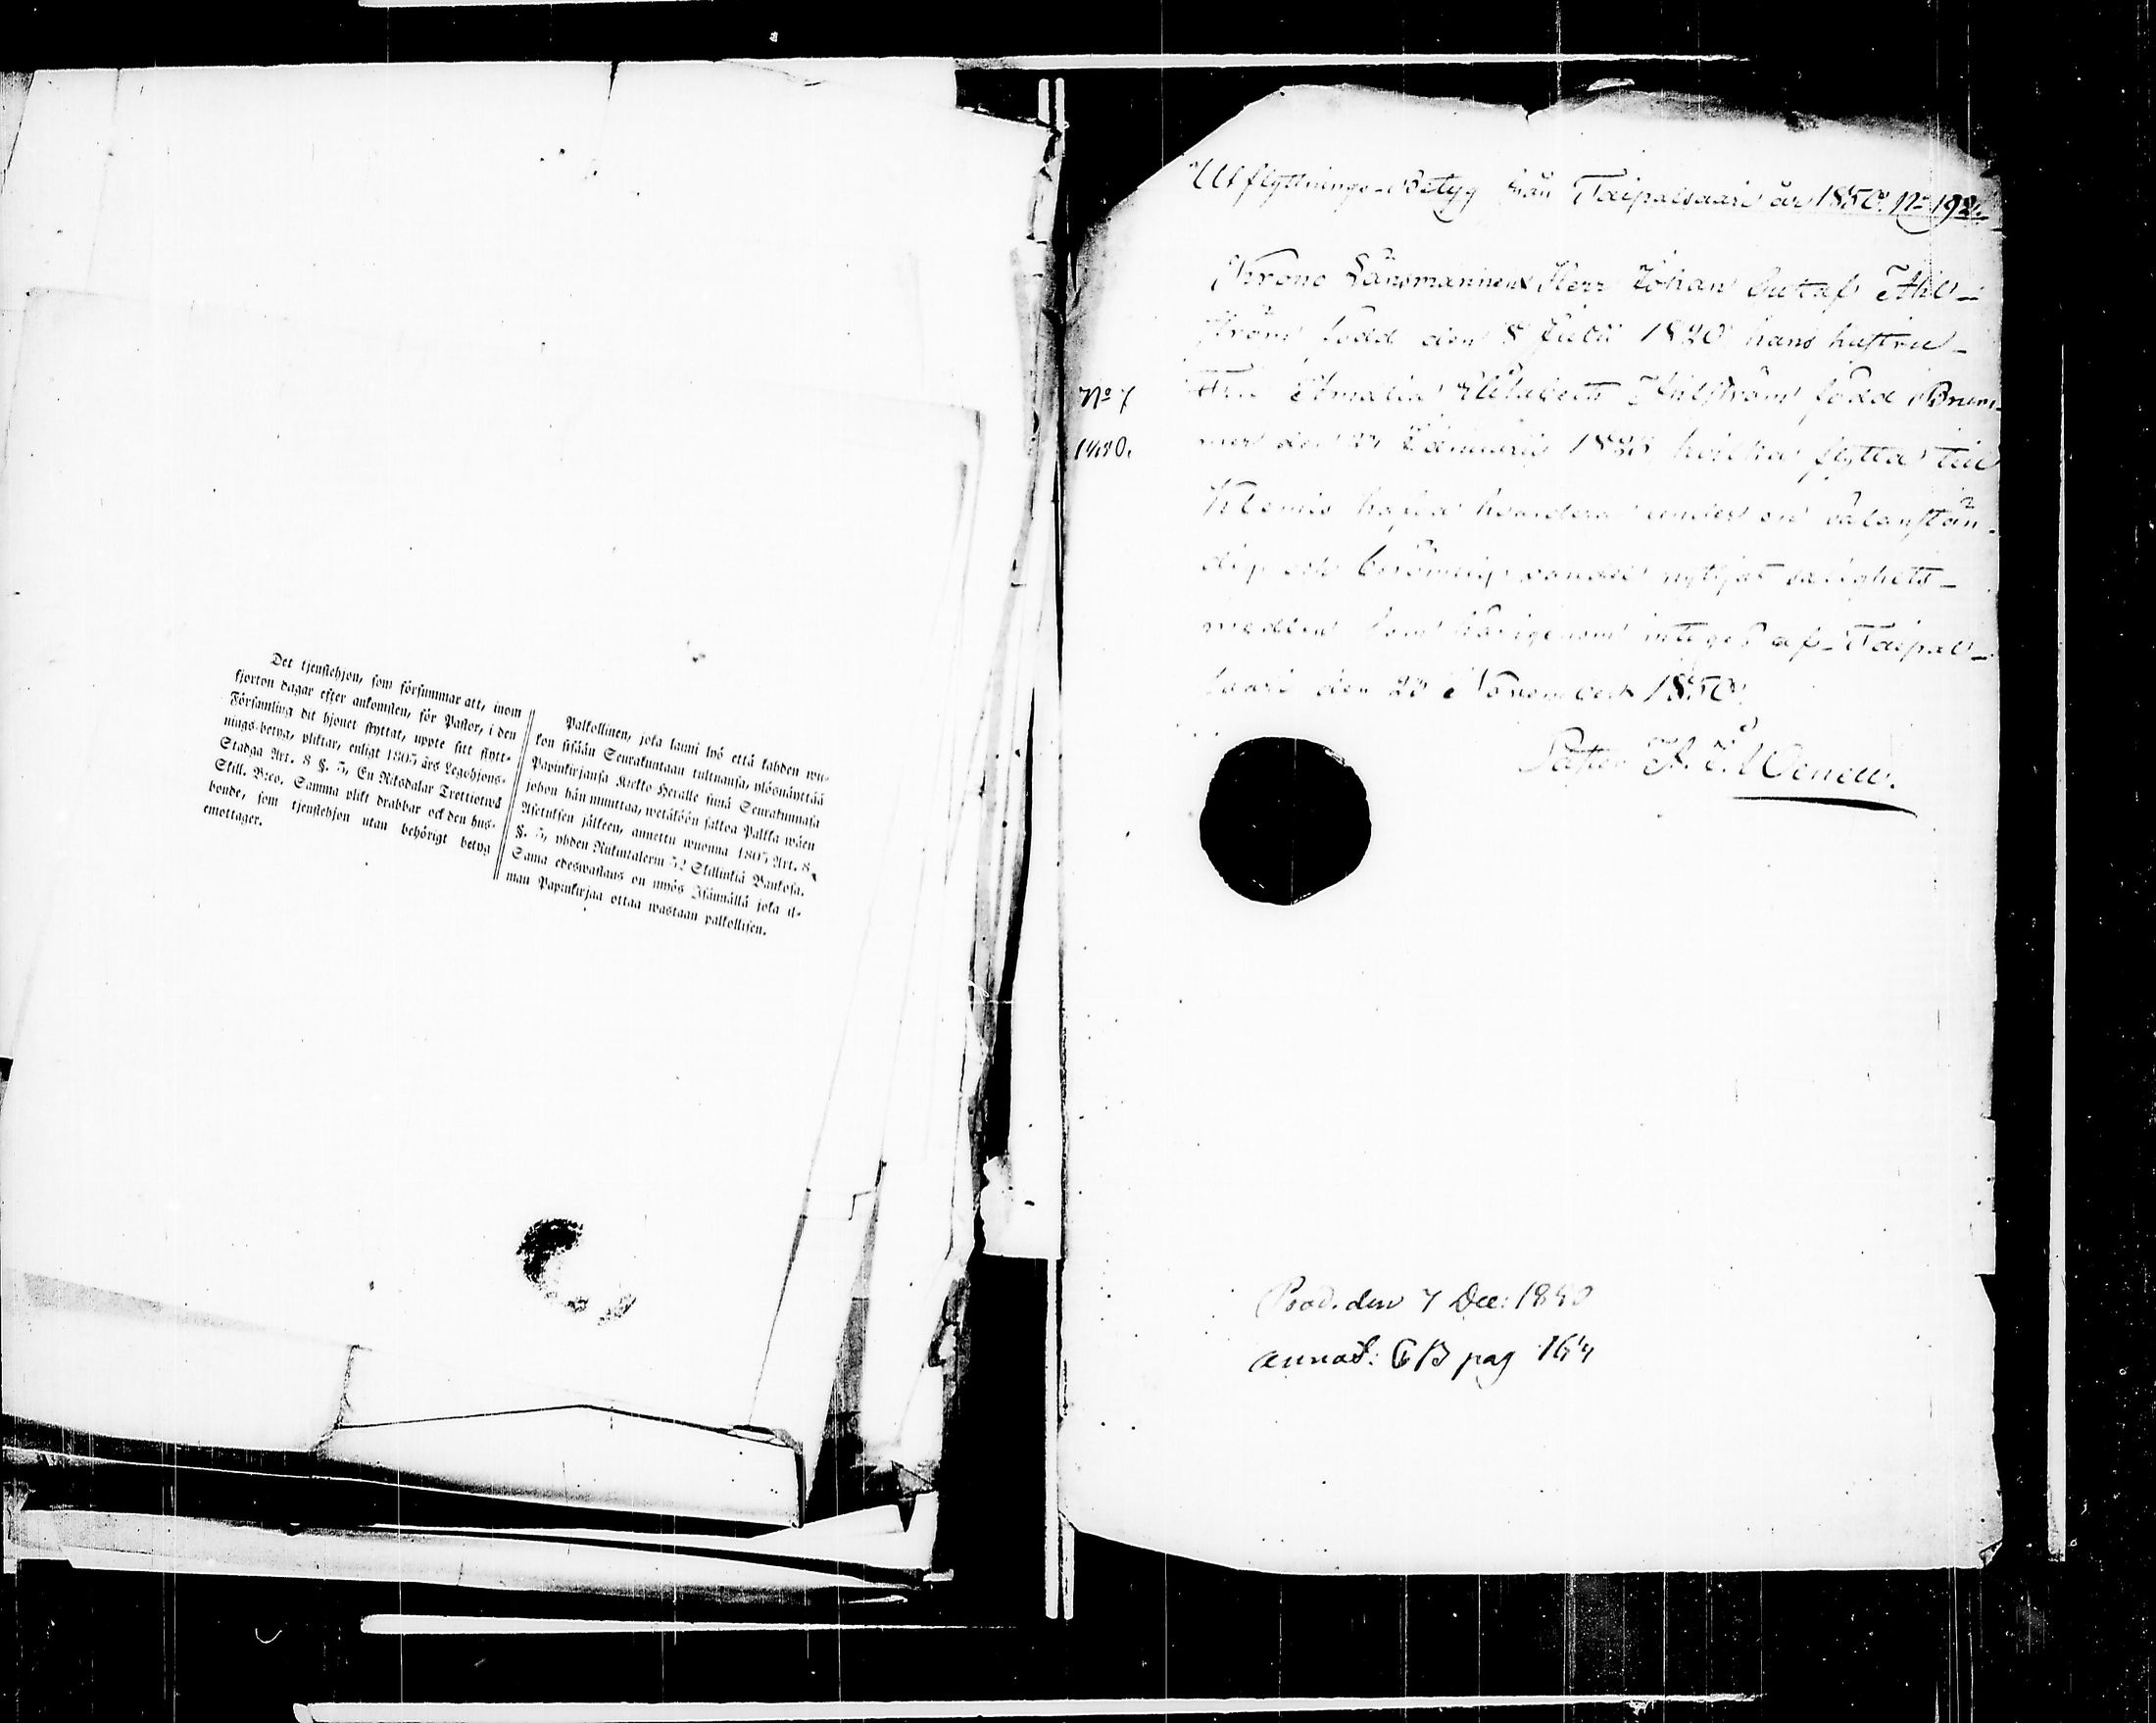 Det tjenstehjon, som försummar att, inom
fjorton dagar efter ankomsten, för Pastor, i den
Församling dit hjonet flyttat, uppte sitt flytt-
nings-betyg, pliktar, enligt 1805 års Legohjons-
Stadga Art. 8 §. 5, En Riksdaler Trettiotwå
Skill. B:co. Samma plikt drabbar ock den hus-
bonde, som tjenstehjon utan behörigt betyg
emottager.
Palkollinen, joka laimi lyö että kahden wii-
kon sisään Seurakuntaan tultuansa, ylösnäyttää
Papinkirjansa Kirkko Herralle siinä Seurakunnasa
johon hän muuttaa, wetäköön sakkoa Palkka wäen
Asetuksen jälkeen, annettu wuonna 1805 Art. 8
§. 5, yhden Riikintalerin 32 Skillinkiä Bankosa.
Sama edeswastaus on myös Isännällä joka il-
man Papinkirjaa ottaa wastaan palkollisen.
Utflyttnings-Betyg från Taipalsaari år 1850. No 192.
Krono Länsmannen Herr Johan Gustaf Ahl-
ström född den 8 Julii 1820 hans hustru
Fru Amalia Elisabeth Ahlström född Brum-
mer den Januarii hvilka flytta till
Klemis hafva hvardera under en välanstän-
dig och berömlig vandel nyttjat salighets-
medlen som härigenom intygas af Taipal-
saari den 20 November 1850.
Pastor
No 7
1850.
Prod. den 7 Dec: 1850
annot: C B pag 164